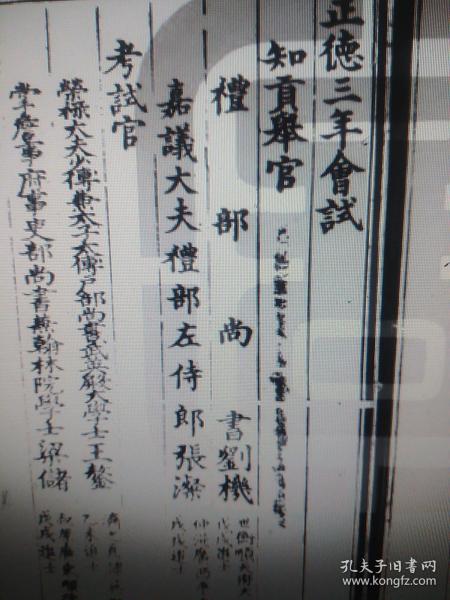 正德三年會試
知貢舉官
禮部尚書劉機
嘉議大夫禮部左侍郎張澯
戊戌進士
考試官
榮祿大夫少傅兼太子太傅戶部尚書武英殿大學士王鏊
掌詹事府事吏部尚書兼翰林院學士梁儲
戊戌進士
孔夫子旧书网
www.kongfz.com